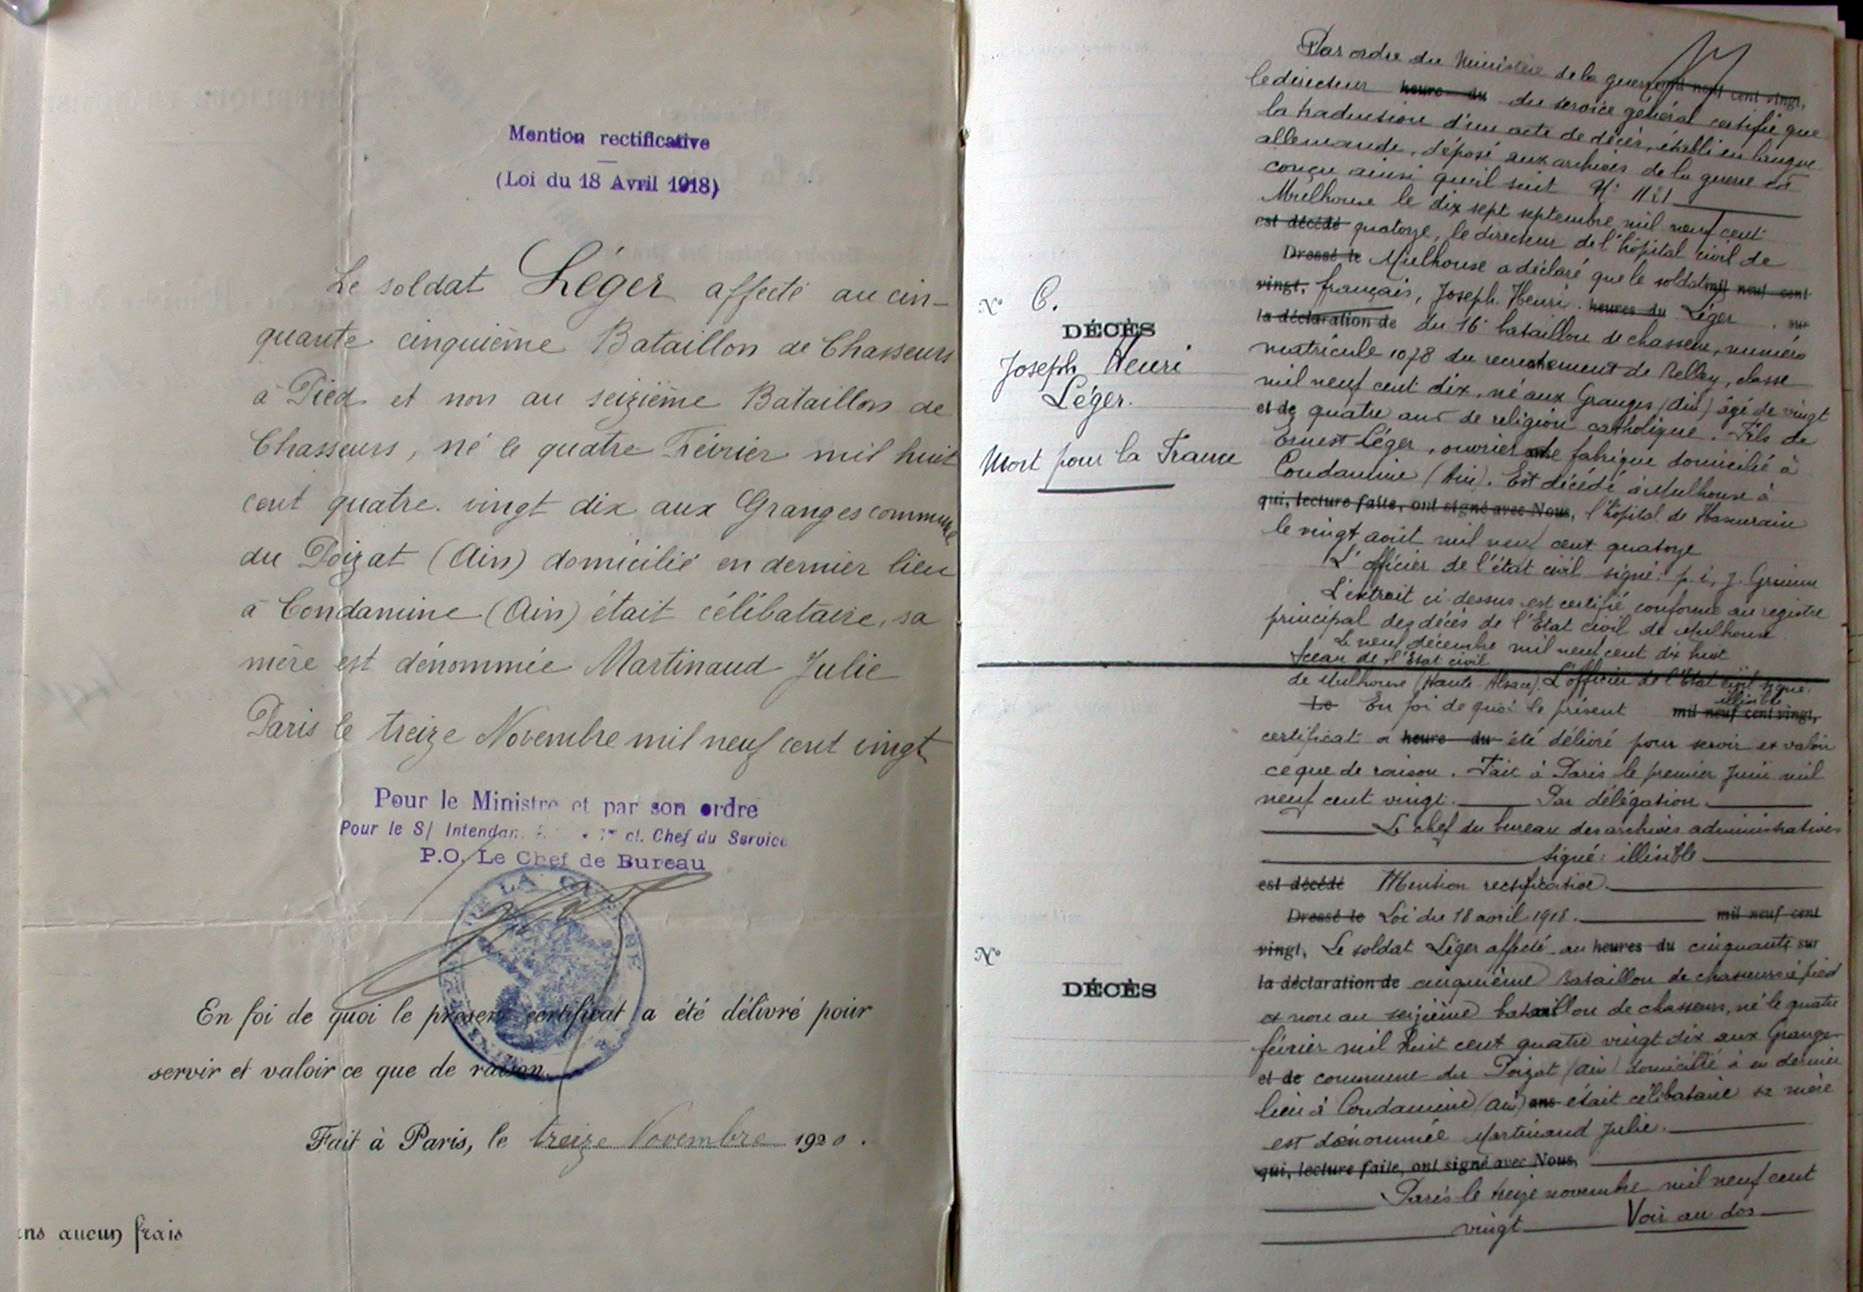 Mention rectificative
(Loi du 18 Avril 1918)
Le soldat Léger affecté au cin-
quante cinquième Bataillon de Chasseurs
à Pied et non au seizième Bataillon de
Chasseurs, né le quatre Février mil huit
cent quatre. vingt dix aux Granges commune
du Poizat (Ain) domicilié en dernier lieu
à Condamine (Ain) était célibataire, sa
mère est dénommée Martinaud Julie
Paris le treize Novembre mil neuf cent vingt
Pour le Ministre et par son ordre
Pour le S/ Intendan ct. Chef du Service
P.O. Le Chef de Bureau
DE LA GUERRE
En foi de quoi le présent certificat a été délivré pour
servir et valoir ce que de raison.
Fait à Paris, le treize Novembre 1920.
ans aucun frais
N° 6.
DÉCÈS
Joseph Henri
Léger.
Mort pour la France
Par ordre du Ministère de la guerre mil neuf cent vingt,
le directeur heure du du service général certifie que
la traduction d'un acte de décès, établi en langue
allemande, déposé aux archives de la guerre est
conçu ainsi qu'il suit N°
Mulhouse le dix sept septembre mil neuf cent
est décédé quatorze, le directeur de l'hôpital civil de
Dressé le Mulhouse a déclaré que le soldat mil neuf cent
vingt, français, Joseph Henri. heures du Léger. sur
la déclaration de du 16e bataillon de chasseurs, numéro
matricule 1078 du recrutement de Belley, classe
mil neuf cent dix, né aux Granges (Ain) âgé de vingt
et de quatre ans de religion catholique. Fils de
Ernest Léger, ouvrier de fabrique domicilié à
Condamine (Ain). Est décédé à Mulhouse à
qui, lecture faite, ont signé avec Nous, l'hôpital de Hasenrain
le vingt août mil neuf cent quatorze
L'officier de l'état civil signé: p. i, J.
L'extrait ci dessus est certifié conforme au registre
principal des décès de l'Etat civil de Mulhouse
Le neuf décembre mil neuf cent dix huit
Sceau de l'Etat civil
de Mulhouse (Haute Alsace). L'officier de l'Etat civil signé:
illisible
Le En foi de quoi le présent mil neuf cent vingt,
certificat a heure du été délivré pour servir et valoir
ce que de raison. Fait à Paris le premier Juin mil
neuf cent vingt. Par délégation
Le chef du bureau des archives administratives
signé: illisible
est décédé Mention rectificative
Dressé le Loi du 18 avril 1918. mil neuf cent
vingt, Le soldat Léger affecté au heures du cinquante sur
la déclaration de cinquième Bataillon de chasseurs à pied
et non au seizième bataillon de chasseurs, né le quatre
février mil huit cent quatre vingt dix aux Granges
et de commune du Poizat (Ain) domicilié à en dernier
lieu à Condamine (Ain) ans était célibataire sa mère
est dénommée Martinaud Julie.
qui, lecture faite, ont signé avec Nous,
Paris le treize novembre mil neuf cent
vingt Voir au dos
N°
DÉCÈS